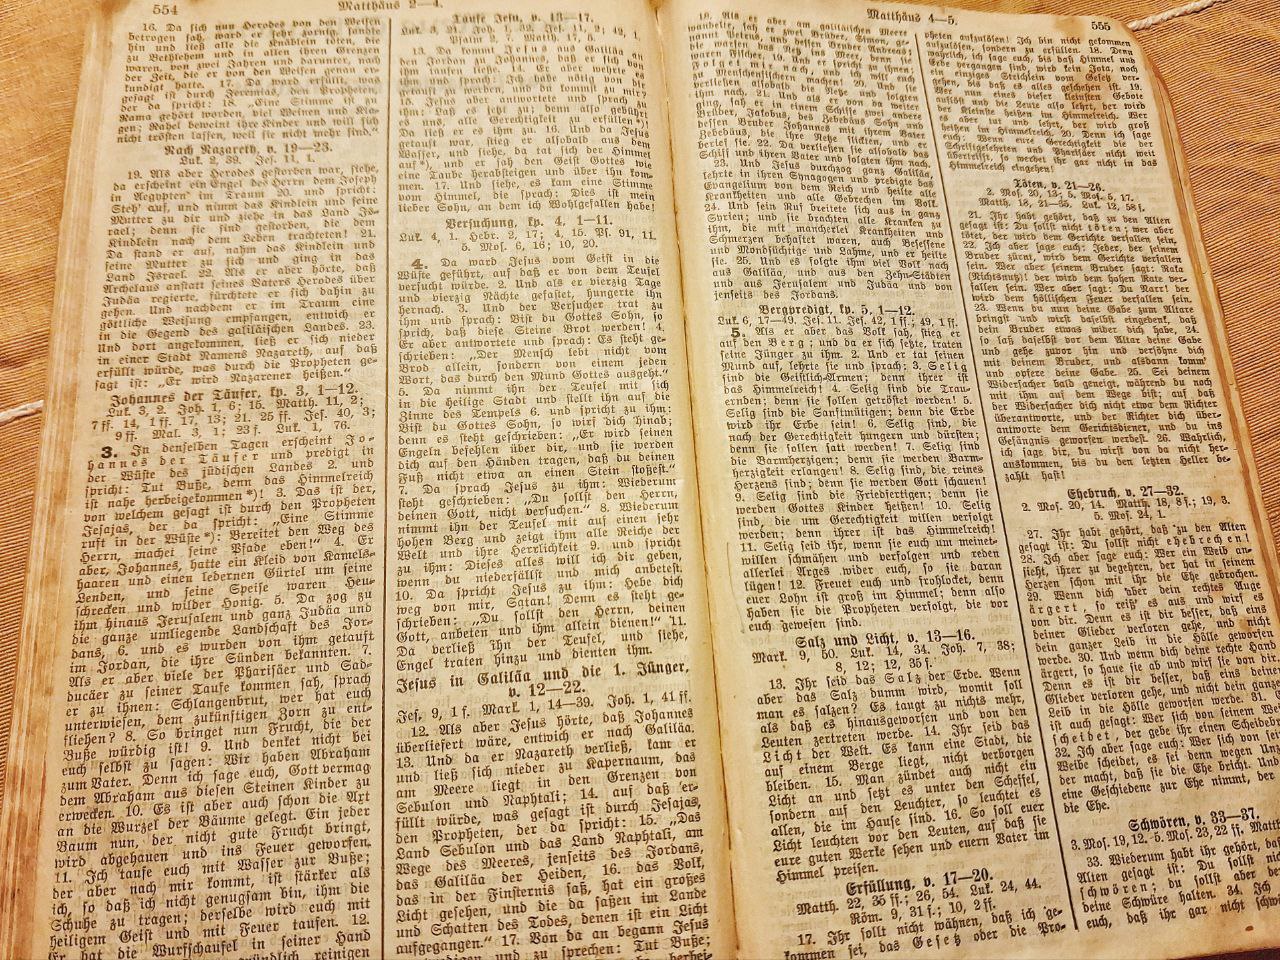 554
Matthäus 2—4.
16. Da sich nun Herodes von den Weisen
betrogen sah, ward er sehr zornig, sandte
hin und ließ alle die Knäblein töten, die
zu Bethlehem und in allen ihren Grenzen
waren, von zwei Jahren und darunter, nach
der Zeit, die er von den Weisen genau er-
kundigt hatte. 17. Da ward erfüllt, was
gesagt ist durch Jeremias, den Propheten,
der da spricht: 18. „Eine Stimme ist zu
Rama gehört worden, viel Weinen und Kla-
gen; Rahel beweint ihre Kinder und will sich
nicht trösten lassen, weil sie nicht mehr sind.“
Nach Nazareth, v. 19—23.
Luk. 2, 39. Jes. 11, 1.
19. Als aber Herodes gestorben war, siehe,
da erscheint ein Engel des Herrn dem Joseph
in Aegypten im Traum 20. und spricht:
Steh' auf, und nimm das Kindlein und seine
Mutter zu dir und ziehe in das Land Is-
rael; denn sie sind gestorben, die dem
Kindlein nach dem Leben trachteten! 21.
Da stand er auf, nahm das Kindlein und
seine Mutter zu sich und ging in das
Land Israel. 22. Als er aber hörte, daß
Archelaus anstatt seines Vaters Herodes über
Judäa regierte, fürchtete er sich dahin zu
gehen. Und nachdem er im Traum eine
göttliche Weisung empfangen, entwich er
in die Gegend des galiläischen Landes. 23.
Und dort angekommen, ließ er sich nieder
in einer Stadt Namens Nazareth, auf daß
erfüllt würde, was durch die Propheten ge-
sagt ist: „Er wird Nazarener heißen.“
Johannes der Täufer, kp. 3, 1—12.
Luk. 3, 2. Joh. 1, 6; 15. Matth. 11, 2;
7 ff. 14, 1 ff. 17, 13; 21, 25 ff. Jes. 40, 3;
9 ff. Mal. 3, 1; 23 f. Luk. 1, 76.
3. In denselben Tagen erscheint Jo-
hannes der Täufer und predigt in
der Wüste des jüdischen Landes 2. und
spricht: Tut Buße, denn das Himmelreich
ist nahe herbeigekommen*)! 3. Das ist der,
von welchem gesagt ist durch den Propheten
Jesajas, der da spricht: „Eine Stimme
ruft in der Wüste*): Bereitet den Weg des
Herrn, machet seine Pfade eben!“ 4. Er
aber, Johannes, hatte ein Kleid von Kamels-
haaren und einen ledernen Gürtel um seine
Lenden, und seine Speise waren Heu-
schrecken und wilder Honig. 5. Da zog zu
ihm hinaus Jerusalem und ganz Judäa und
die ganze umliegende Landschaft des Jor-
dans, 6. und es wurden von ihm getauft
im Jordan, die ihre Sünden bekannten. 7.
Als er aber viele der Pharisäer und Sad-
ducäer zu seiner Taufe kommen sah, sprach
er zu ihnen: Schlangenbrut, wer hat euch
unterwiesen, dem zukünftigen Zorn zu ent-
fliehen? 8. So bringet nun Frucht, die der
Buße würdig ist! 9. Und denket nicht bei
euch selbst zu sagen: Wir haben Abraham
zum Vater. Denn ich sage euch, Gott vermag
dem Abraham aus diesen Steinen Kinder zu
erwecken. 10. Es ist aber auch schon die Axt
an die Wurzel der Bäume gelegt. Ein jeder
Baum nun, der nicht gute Frucht bringt,
wird abgehauen und ins Feuer geworfen.
11. Ich taufe euch mit Wasser zur Buße;
der aber nach mir kommt, ist stärker als
ich, so daß ich nicht genugsam bin, ihm die
Schuhe zu tragen; derselbe wird euch mit
heiligem Geist und mit Feuer taufen. 12.
Er hat die Wurfschaufel in seiner Hand
gründlich reinigen
Taufe Jesu, v. 13—17.
Luk. 3, 21. Joh. 1, 32. Jes. 11, 2; 42, 1.
Psalm 2, 7. Matth. 17, 5.
13. Da kommt Jesus aus Galiläa an
den Jordan zu Johannes, daß er sich von
ihm taufen ließe. 14. Er aber wehrte es
ihm und sprach: Ich habe nötig von dir
getauft zu werden, und du kommst zu mir?
15. Jesus aber antwortete und sprach zu
ihm: Laß es jetzt zu; denn also gebührt
es uns, alle Gerechtigkeit zu erfüllen*)!
Da ließ er es ihm zu. 16. Und da Jesus
getauft war, stieg er alsobald aus dem
Wasser, und siehe, da tat sich der Himmel
auf*), und er sah den Geist Gottes wie
eine Taube herabsteigen und über ihn kom-
men. 17. Und siehe, es kam eine Stimme
vom Himmel, die sprach: Dies ist mein
lieber Sohn, an dem ich Wohlgefallen habe!
Versuchung, kp. 4, 1—11.
Luk. 4, 1. Hebr. 2, 17; 4, 15. Pf. 91, 11.
5. Mos. 6, 16; 10, 20.
4. Da ward Jesus vom Geist in die
Wüste geführt, auf daß er von dem Teufel
versucht würde. 2. Und als er vierzig Tage
und vierzig Nächte gefastet, hungerte ihn
hernach. 3. Und der Versucher trat zu
ihm und sprach: Bist du Gottes Sohn, so
sprich, daß diese Steine Brot werden! 4.
Er aber antwortete und sprach: Es steht ge-
schrieben: „Der Mensch lebt nicht vom
Brod allein, sondern von einem jeden
Wort, das durch den Mund Gottes ausgeht.“
5. Da nimmt ihn der Teufel mit sich
in die heilige Stadt und stellt ihn auf die
Zinne des Tempels 6. und spricht zu ihm:
Bist du Gottes Sohn, so wirf dich hinab;
denn es steht geschrieben: „Er wird seinen
Engeln befehlen über dir, und sie werden
dich auf den Händen tragen, daß du deinen
Fuß nicht etwa an einen Stein stoßest.“
7. Da sprach Jesus zu ihm: Wiederum
steht geschrieben: „Du sollst den Herrn,
deinen Gott, nicht versuchen.“ 8. Wiederum
nimmt ihn der Teufel mit auf einen sehr
hohen Berg und zeigt ihm alle Reiche der
Welt und ihre Herrlichkeit 9. und spricht
zu ihm: Dieses alles will ich dir geben,
wenn du niederfällst und mich anbetest.
10. Da spricht Jesus zu ihm: Hebe dich
weg von mir, Satan! Denn es steht ge-
schrieben: „Du sollst den Herrn, deinen
Gott, anbeten und ihm allein dienen!“ 11.
Da verließ ihn der Teufel, und siehe,
Engel traten hinzu und dienten ihm.
Jesus in Galiläa und die 1. Jünger,
v. 12—22.
Jes. 9, 1 f. Mark. 1, 14—39. Joh. 1, 41 ff.
12. Als aber Jesus hörte, daß Johannes
überliefert wäre, entwich er nach Galiläa.
13. Und da er Nazareth verließ, kam er
und ließ sich nieder zu Kapernaum, das
am Meere liegt in den Grenzen von
Sebulon und Naphtali; 14. auf daß er-
füllt würde, was gesagt ist durch Jesajas,
den Propheten, der da spricht: 15. „Das
Land Sebulon und das Land Naphtali, am
Wege des Meeres, jenseits des Jordans,
das Galiläa der Heiden, 16. das Volk,
das in der Finsternis saß, hat ein großes
Licht gesehen, und die da saßen im Lande
und Schatten des Todes, denen ist ein Licht
aufgegangen.“ 17. Von da an begann Jesus
zu predigen und zu sprechen: Tut Buße;
Matthäus 4—5.
555
18. Als er aber am galiläischen Meere
wandelte, sah er zwei Brüder, Simon, ge-
nannt Petrus, und dessen Bruder Andreas;
die warfen das Netz ins Meer, denn sie
waren Fischer. 19. Und er spricht zu ihnen:
Folget mir nach, und ich will euch
zu Menschenfischern machen! 20. Und sie
verließen alsobald die Netze und folgten
ihm nach. 21. Und als er von da weiter
ging, sah er in einem Schiffe zwei andere
Brüder, Jakobus, des Zebedäus Sohn und
dessen Bruder Johannes mit ihrem Vater
Zebedäus, die ihre Netze flickten, und er
berief sie. 22. Da verließen sie alsobald das
Schiff und ihren Vater und folgten ihm nach.
23. Und Jesus durchzog ganz Galiläa,
lehrte in ihren Synagogen und predigte das
Evangelium von dem Reich und heilte alle
Krankheiten und alle Gebrechen im Volk.
24. Und sein Ruf breitete sich aus in ganz
Syrien; und sie brachten alle Kranken zu
ihm, die mit mancherlei Krankheiten und
Schmerzen behaftet waren, auch Besessene
und Mondsüchtige und Lahme, und er heilte
sie. 25. Und es folgte ihm viel Volk nach
aus Galiläa, und aus den Zehn-Städten
und aus Jerusalem und Judäa und von
jenseits des Jordans.
Bergpredigt, kp. 5, 1—12.
Luk. 6, 17—49. Jes. 11. Jes. 42, 1 ff.; 49, 1 ff.
5. Als er aber das Volk sah, stieg er
auf den Berg; und da er sich setzte, traten
seine Jünger zu ihm. 2. Und er tat seinen
Mund auf, lehrte sie und sprach: 3. Selig
sind die Geistlich-Armen; denn ihrer ist
das Himmelreich! 4. Selig sind die Trau-
ernden; denn sie sollen getröstet werden! 5.
Selig sind die Sanftmütigen; denn die Erde
wird ihr Erbe sein! 6. Selig sind, die
nach der Gerechtigkeit hungern und dürsten;
denn sie sollen satt werden! 7. Selig sind
die Barmherzigen; denn sie werden Barm-
herzigkeit erlangen! 8. Selig sind, die reines
Herzens sind; denn sie werden Gott schauen!
9. Selig sind die Friedfertigen; denn sie
werden Gottes Kinder heißen! 10. Selig
sind, die um Gerechtigkeit willen verfolgt
werden; denn ihrer ist das Himmelreich!
11. Selig seid ihr, wenn sie euch um meinet-
willen schmähen und verfolgen und reden
allerlei Arges wider euch, so sie daran
lügen! 12. Freuet euch und frohlocket, denn
euer Lohn ist groß im Himmel; denn also
haben sie die Propheten verfolgt, die vor
euch gewesen sind.
Salz und Licht, v. 13—16.
Mark. 9, 50. Luk. 14, 34. Joh. 7, 38;
8, 12; 12, 35 f.
13. Ihr seid das Salz der Erde. Wenn
aber das Salz dumm wird, womit soll
man es salzen? Es taugt zu nichts mehr,
als daß es hinausgeworfen und von den
Leuten zertreten werde. 14. Ihr seid das
Licht der Welt. Es kann eine Stadt, die
auf einem Berge liegt, nicht verborgen
bleiben. 15. Man zündet auch nicht ein
Licht an und setzt es unter den Scheffel,
sondern auf den Leuchter, so leuchtet es
allen, die im Hause sind. 16. So soll euer
Licht leuchten vor den Leuten, auf daß sie
eure guten Werke sehen und euern Vater im
Himmel preisen.
Erfüllung, v. 17—20.
Matth. 22, 35 ff.; 26, 54. Luk. 24, 44.
Röm. 9, 31 f.; 10, 2 ff.
17. Ihr sollt nicht wähnen, daß ich ge-
kommen sei, das Gesetz oder die Pro-
pheten aufzulösen! Ich bin nicht gekommen
aufzulösen, sondern zu erfüllen. 18. Denn
wahrlich, ich sage euch, bis daß Himmel und
Erde vergangen sind, wird kein Jota, noch
ein einziges Strichlein vom Gesetz ver-
gehen, bis daß es alles geschehen ist. 19.
Wer nun eines dieser kleinsten Gebote
auflöst und die Leute also lehrt, der wird
der Kleinste heißen im Himmelreich. Wer
es aber tut und lehrt, der wird groß
heißen im Himmelreich. 20. Denn ich sage
euch: Wenn eure Gerechtigkeit die der
Schriftgelehrten und Pharisäer nicht weit
übertrifft, so werdet ihr gar nicht in das
Himmelreich eingehen!
Töten, v. 21—26.
2. Mos. 20, 13; 5. Mos. 5, 17.
Matth. 18, 21—35. Luk. 12, 58 f.
21. Ihr habt gehört, daß zu den Alten
gesagt ist: Du sollst nicht töten; wer aber
tötet, der wird dem Gerichte verfallen sein.
22. Ich aber sage euch: Jeder, der seinem
Bruder zürnt, wird dem Gerichte verfallen
sein. Wer aber seinem Bruder sagt: Raka
(Nichtsnutz)! der wird dem hohen Rate ver-
fallen sein. Wer aber sagt: Du Narr! der
wird dem höllischen Feuer verfallen sein.
23. Wenn du nun deine Gabe zum Altare
bringst und wirst daselbst eingedenk, daß
dein Bruder etwas wider dich habe, 24.
so laß daselbst vor dem Altar deine Gabe
und gehe zuvor hin und versöhne dich
mit deinem Bruder, und alsdann komm'
und opfere deine Gabe. 25. Sei deinem
Widersacher bald geneigt, während du noch
mit ihm auf dem Wege bist; auf daß
der Widersacher dich nicht etwa dem Richter
überantworte, und der Richter dich über-
antworte dem Gerichtsdiener, und du ins
Gefängnis geworfen werdest. 26. Wahrlich,
ich sage dir, du wirst von da nicht heraus-
kommen, bis du den letzten Heller be-
zahlt hast!
Ehebruch, v. 27—32.
2. Mos. 20, 14. Matth. 18, 8 f.; 19, 3.
5. Mos. 24, 1.
27. Ihr habt gehört, daß zu den Alten
gesagt ist: Du sollst nicht ehebrechen!
28. Ich aber sage euch: Wer ein Weib an-
sieht, ihrer zu begehren, der hat in seinem
Herzen schon mit ihr die Ehe gebrochen.
29. Wenn dich aber dein rechtes Auge
ärgert, so reiß' es aus und wirf es
von dir. Denn es ist dir besser, daß eins
deiner Glieder verloren gehe, und nicht
dein ganzer Leib in die Hölle geworfen
werde. 30. Und wenn dich deine rechte Hand
ärgert, so haue sie ab und wirf sie von dir.
Denn es ist dir besser, daß eins deiner
Glieder verloren gehe, und nicht dein ganzer
Leib in die Hölle geworfen werde. 31. Es
ist auch gesagt: Wer sich von seinem Weibe
scheidet, der gebe ihr einen Scheidebrief.
32. Ich aber sage euch: Wer sich von seinem
Weibe scheidet, es sei denn wegen Unzucht,
der macht, daß sie die Ehe bricht. Und wer
eine Geschiedene zur Ehe nimmt, der bricht
die Ehe.
Schwören, v. 33—37.
3. Mos. 19, 12. 5. Mos. 23, 22 ff. Matth.
33. Wiederum habt ihr gehört, daß
Alten gesagt ist: Du sollst nicht
schwören; du sollst aber dem
deine Schwüre halten. 34. Ich
euch, daß ihr gar nicht schwö